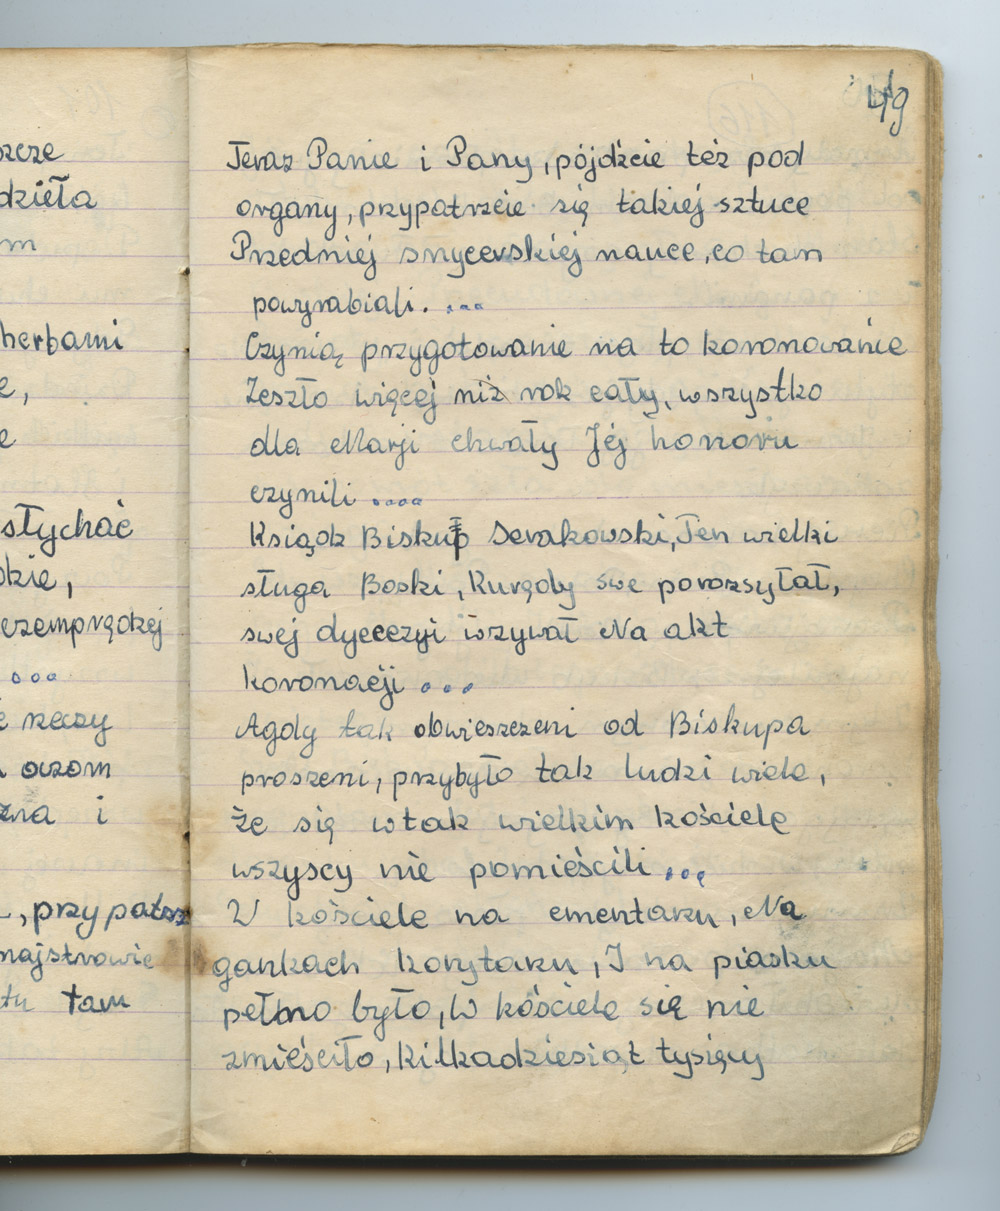 szcze
dzieła
m
herbami
e,
e
słychać
okie,
czemprędzej
...
ż rzeczy
oczom
zna i
, przypatrz
majstrowie
tu tam
49
Teraz Panie i Pany, pójdźcie też pod
organy, przypatrzcie się takiej sztuce
Przedniej snycerskiej nauce, co tam
powyrabiali. ...
Czynią przygotowanie na to koronowanie
Zeszło więcej niż rok cały, wszystko
dla Marji chwały Jéj honoru
czynili ....
Ksiądz Biskup Serakowski, Ten wielki
sługa Boski, Kurędy swe porozsyłał,
swej dyecezyi wzywał Na akt
koronacji ...
Agdy tak obwieszczeni od Biskupa
proszeni, przybyło tak ludzi wiele,
że się wtak wielkim kościele
wszyscy nie pomieścili ...
W kościele na cmentaru, Na
gankach korytaru, I na piasku
pełno było, W kościele się nie
zmieściło, kilkadziesiąt tysięcy